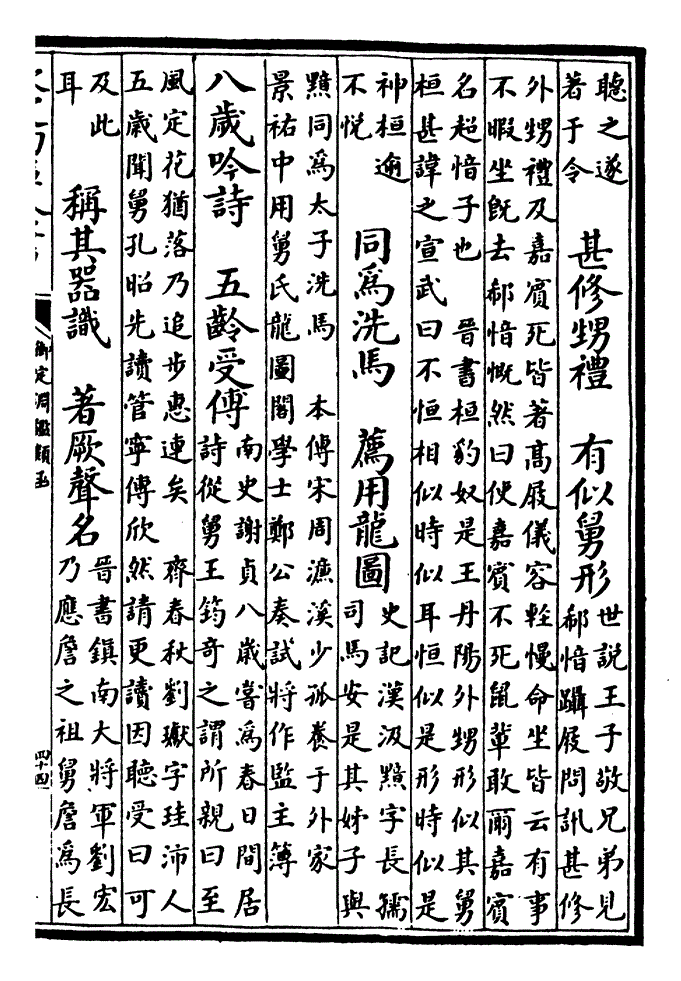 聽之遂
著于令
甚修甥禮 有似舅形
世說王子敬兄弟見
郗愔躡履問訊甚修
外甥禮及嘉賓死皆著高屐儀容輕慢命坐皆云有事
不暇坐旣去郗愔慨然曰使嘉賓不死鼠輩敢爾嘉賓
名超愔子也 晉書桓豹奴是王丹陽外甥形似其舅
桓甚諱之宣武曰不恒相似時似耳恒似是形時似是
神桓逾
不悅
同爲洗馬 薦用龍圖
史記漢汲黯字長孺
司馬安是其姊子與
黯同爲太子洗馬 本傳宋周濂溪少孤養于外家
景祐中用舅氏龍圖閣學士鄭公奏試將作監主簿
八歲吟詩 五齡受傅
南史謝貞八歲嘗爲春日間居
詩從舅王筠奇之謂所親曰至
風定花猶落乃追步惠連矣 齊春秋劉瓛字珪沛人
五歲聞舅孔昭先讀管寧傳欣然請更讀因聽受曰可
及此
耳
稱其器識 著厥聲名
晉書鎮南大將軍劉宏
乃應詹之祖舅詹爲長
御定淵鑑類函
四十四